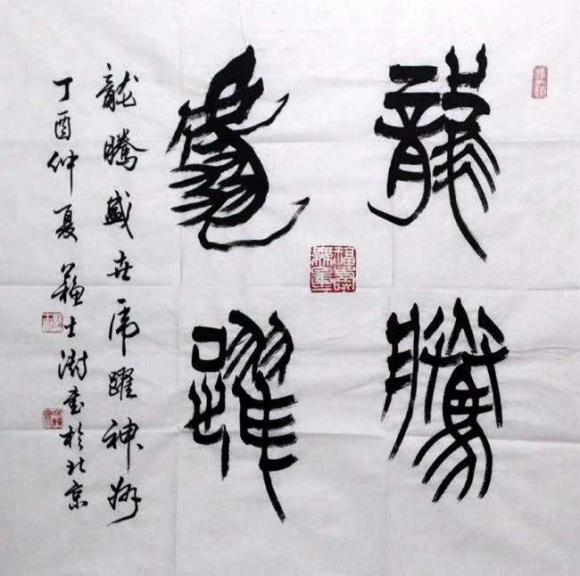 龍騰
虎躍
龍騰盛世虎躍神州
丁酉仲夏蘇士澍書於北京